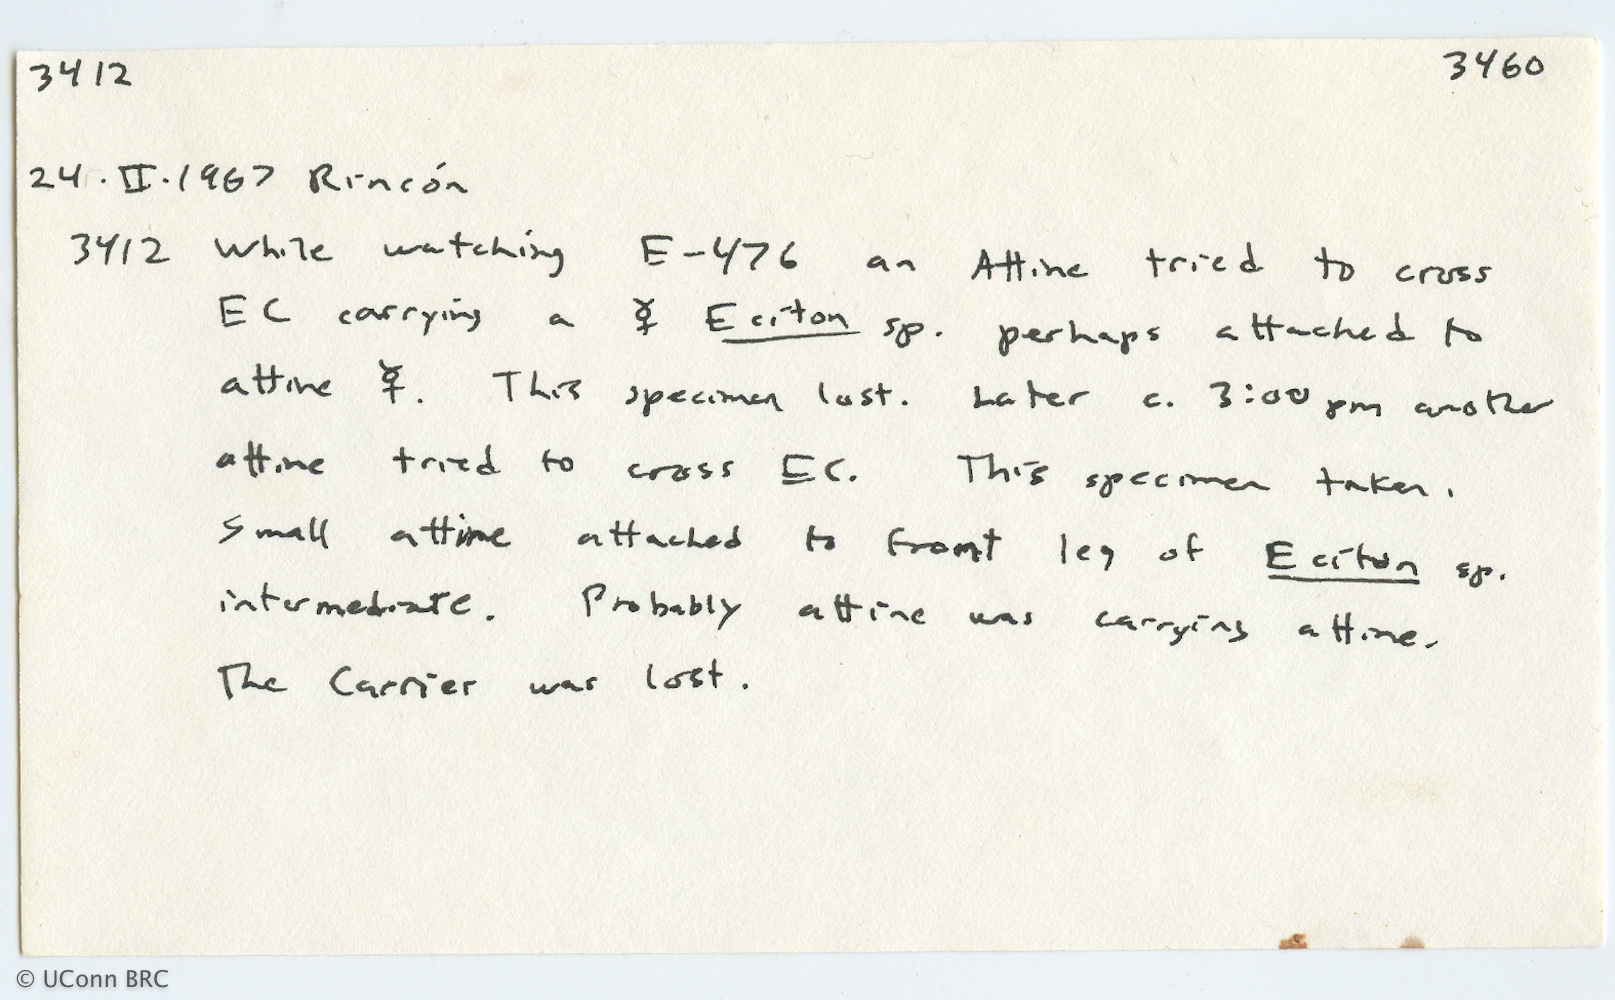 3412 3460
24.II.1967 Rincón
3412 While watching E-476 an Attine tried to cross
EC carrying a ☿ Eciton sp. perhaps attached to
attine ☿. This specimen lost. Later c. 3:00 pm another
attine tried to cross EC. This specimen taken.
Small attine attached to front leg of Eciton sp.
intermediate. Probably attine was carrying attine.
The Carrier was lost.
© UConn BRC